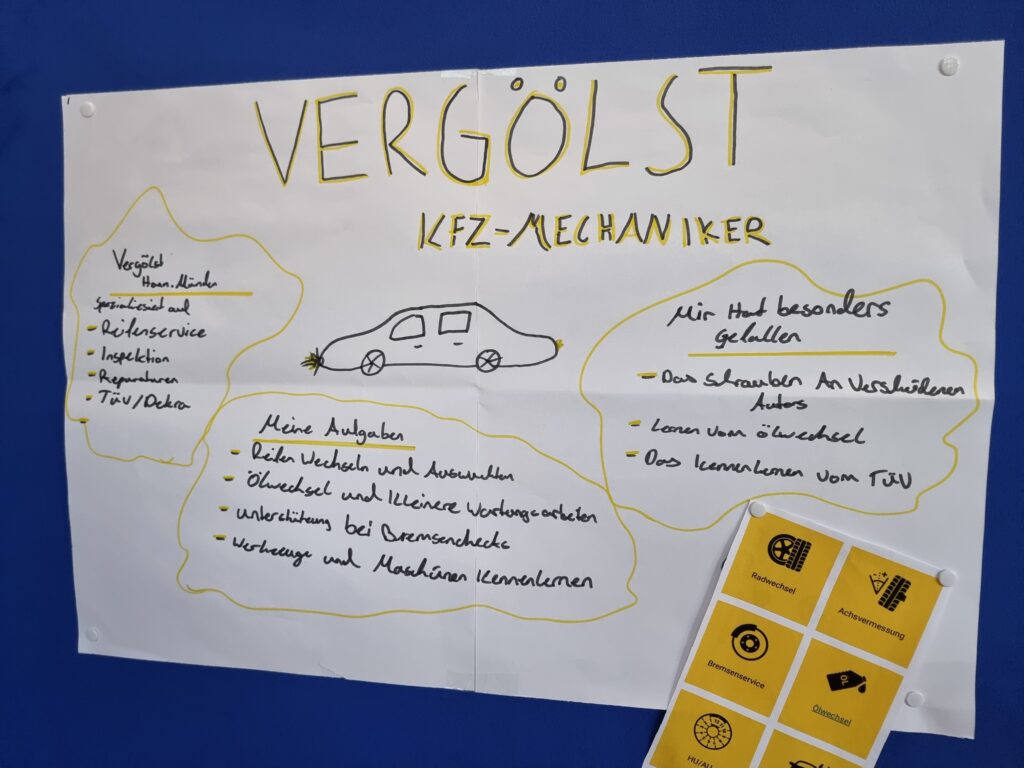 VERGÖLST
KFZ-MECHANIKER
Vergölst
Hann. Münden
Spezialisiert auf
- Reifenservice
- Inspektion
- Reparaturen
- TÜV/Dekra
-
Meine Aufgaben
- Reifen Wechseln und Auswuchten
- Ölwechsel und kleinere Wartungsarbeiten
- unterstützung bei Bremsenchecks
- Werkzeuge und Maschinen kennenlernen
Mir Hat besonders
Gefallen
- Das Schrauben An Verschiedenen
Autos
- Lernen vom ölwechsel
- Das kennenlernen vom TÜV
Radwechsel
Achsvermessung
Bremsenservice
ÖL
Ölwechsel
HU/AU